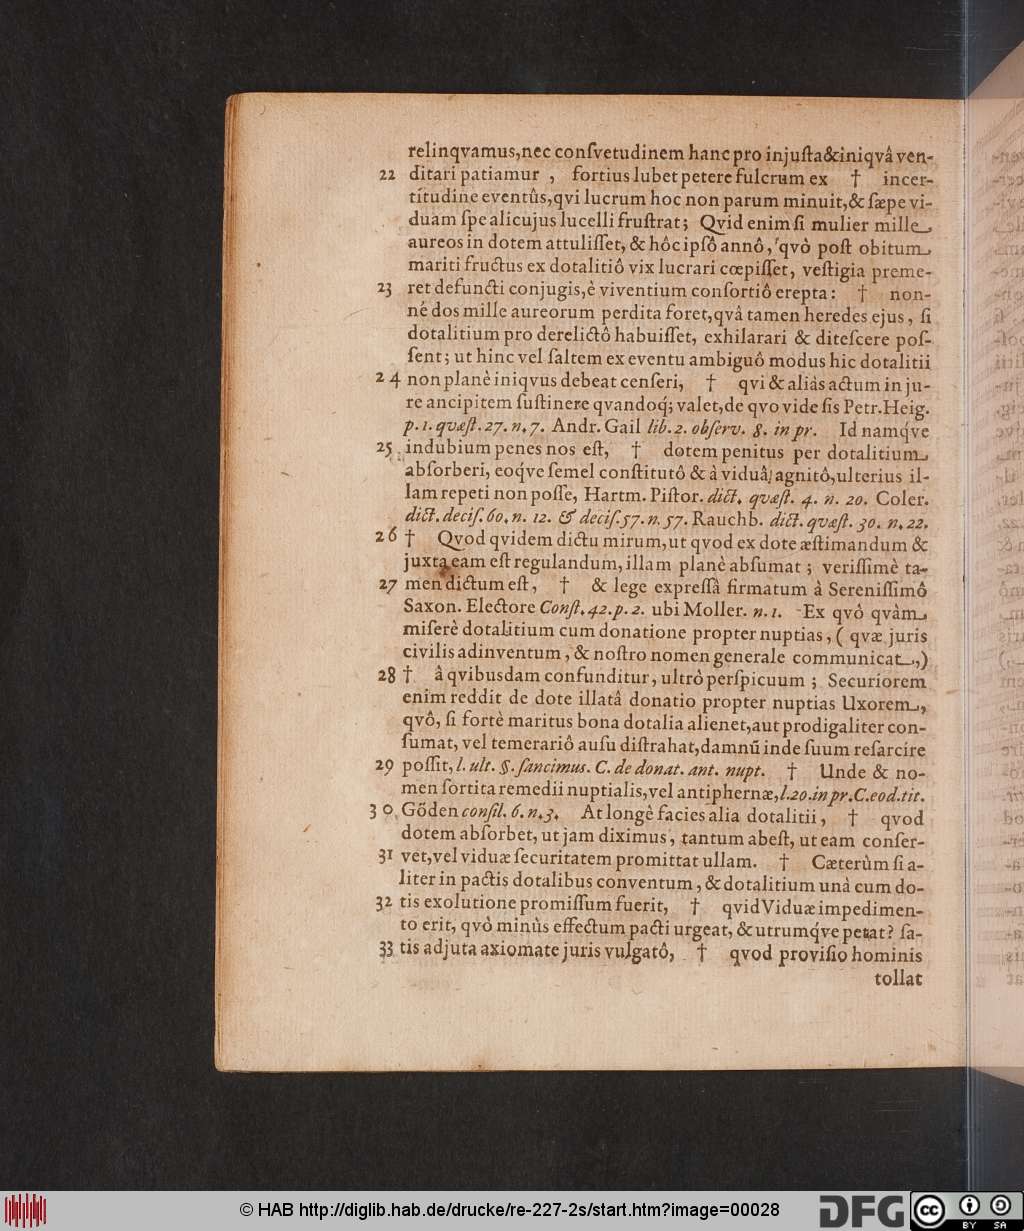 relinqvamus, nec conſvetudinem hanc pro injuſta & iniqvâ ven-
22 ditari patiamur , fortius lubet petere fulcrum ex † incer-
titudine eventûs, qvi lucrum hoc non parum minuit, & ſæpe vi-
duam ſpe alicujus lucelli fruſtrat; Qvid enim ſi mulier mille
aureos in dotem attuliſſet, & hôc ipſô annô, qvò poſt obitum
mariti fructus ex dotalitiô vix lucrari cœpiſſet, veſtigia preme-
23 ret defuncti conjugis, è viventium conſortiô erepta: † non-
né dos mille aureorum perdita foret, qvâ tamen heredes ejus, ſi
dotalitium pro derelictô habuiſſet, exhilarari & diteſcere poſ-
ſent; ut hinc vel ſaltem ex eventu ambiguô modus hic dotalitii
24 non planè iniqvus debeat cenſeri, † qvi & aliàs actum in ju-
re ancipitem ſuſtinere qvandoq́; valet, de qvo vide ſis Petr. Heig.
p. 1. qvæſt. 27. n. 7. Andr. Gail lib. 2. obſerv. 8. in pr. Id namq́ve
25 indubium penes nos eſt, † dotem penitus per dotalitium
abſorberi, eoq́ve ſemel conſtitutô & à viduâ agnitô, ulterius il-
lam repeti non poſſe, Hartm. Piſtor. dict. qvæſt. 4. n. 20. Coler.
dict. deciſ. 60. n. 12. & deciſ. 57. n. 57. Rauchb. dict. qvæſt. 30. n. 22.
26 † Qvod qvidem dictu mirum, ut qvod ex dote æſtimandum &
juxta eam eſt regulandum, illam planè abſumat; veriſſimè ta-
27 men dictum eſt, † & lege expreſſâ firmatum à Sereniſſimô
Saxon. Electore Conſt. 42. p. 2. ubi Moller. n. 1. Ex qvô qvàm
miſerè dotalitium cum donatione propter nuptias, ( qvæ juris
civilis adinventum, & noſtro nomen generale communicat,)
28 † â qvibusdam confunditur, ultrò perſpicuum; Securiorem
enim reddit de dote illatâ donatio propter nuptias Uxorem,
qvô, ſi fortè maritus bona dotalia alienet, aut prodigaliter con-
ſumat, vel temerariô auſu diſtrahat, damnũ inde ſuum reſarcire
29 poſſit, l. ult. §. ſancimus. C. de donat. ant. nupt. † Unde & no-
men ſortita remedii nuptialis, vel antiphernæ, l. 20. in pr. C. eod. tit.
30 Gőden conſil. 6. n. 3. At longè facies alia dotalitii, † qvod
dotem abſorbet, ut jam diximus, tantum abeſt, ut eam conſer-
31 vet, vel viduæ ſecuritatem promittat ullam. † Cæterùm ſi a-
liter in pactis dotalibus conventum, & dotalitium unà cum do-
32 tis exolutione promiſſum fuerit, † qvid Viduæ impedimen-
to erit, qvò minùs effectum pacti urgeat, & utrumq́ve petat? ſa-
33 tis adjuta axiomate juris vulgatô, † qvod proviſio hominis
tollat
© HAB http://diglib.hab.de/drucke/re-227-2s/start.htm?image=00028
DFG
cc BY SA